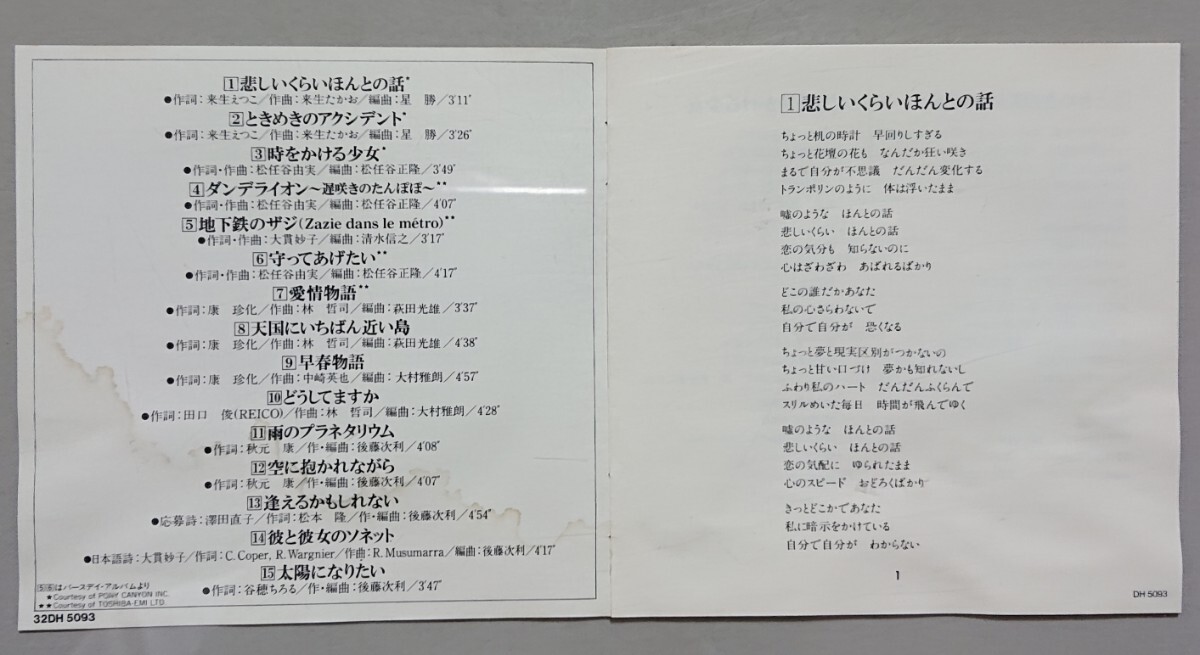 1 悲しいくらいほんとの話*
●作詞：来生えつこ／作曲：来生たかお／編曲：星　勝／3'11"
2 ときめきのアクシデント*
●作詞：来生えつこ／作曲：来生たかお／編曲：星　勝／3'26"
3 時をかける少女*
●作詞・作曲：松任谷由実／編曲：松任谷正隆／3'49"
4 ダンデライオン〜遅咲きのたんぽぽ〜**
●作詞・作曲：松任谷由実／編曲：松任谷正隆／4'07"
5 地下鉄のザジ(Zazie dans le métro)**
●作詞・作曲：大貫妙子／編曲：清水信之／3'17"
6 守ってあげたい**
●作詞・作曲：松任谷由実／編曲：松任谷正隆／4'17"
7 愛情物語**
●作詞：康　珍化／作曲：林　哲司／編曲：萩田光雄／3'37"
8 天国にいちばん近い島
●作詞：康　珍化／作曲：林　哲司／編曲：萩田光雄／4'38"
9 早春物語
●作詞：康　珍化／作曲：中崎英也／編曲：大村雅朗／4'57"
10 どうしてますか
●作詞：田口　俊(REICO)／作曲：林　哲司／編曲：大村雅朗／4'28"
11 雨のプラネタリウム
●作詞：秋元　康／作・編曲：後藤次利／4'08"
12 空に抱かれながら
●作詞：秋元　康／作・編曲：後藤次利／4'07"
13 逢えるかもしれない
●応募詩：澤田直子／作詞：松本　隆／作・編曲：後藤次利／4'54"
14 彼と彼女のソネット
●日本語詩：大貫妙子／作詞：C. Coper, R. Wargnier／作曲：R. Musumarra／編曲：後藤次利／4'17"
15 太陽になりたい
●作詞：谷穂ちろる／作・編曲：後藤次利／3'47"
5 6 はバースデイ・アルバムより
★Courtesy of PONY CANYON INC.
★★Courtesy of TOSHIBA-EMI LTD.
32DH 5093
1 悲しいくらいほんとの話
ちょっと机の時計　早回りしすぎる
ちょっと花壇の花も　なんだか狂い咲き
まるで自分が不思議　だんだん変化する
トランポリンのように　体は浮いたまま
嘘のような　ほんとの話
悲しいくらい　ほんとの話
恋の気分も　知らないのに
心はざわざわ　あばれるばかり
どこの誰だかあなた
私の心さらわないで
自分で自分が　恐くなる
ちょっと夢と現実区別がつかないの
ちょっと甘い口づけ　夢かも知れないし
ふわり私のハート　だんだんふくらんで
スリルめいた毎日　時間が飛んでゆく
嘘のような　ほんとの話
悲しいくらい　ほんとの話
恋の気配に　ゆられたまま
心のスピード　おどろくばかり
きっとどこかであなた
私に暗示をかけている
自分で自分が　わからない
1
DH 5093